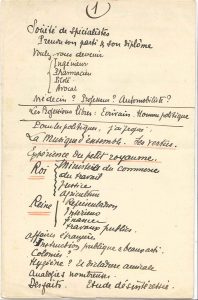 1
Société de spécialistes
Prendre son parti & son diplôme
Voulez vous devenir
Ingénieur
Pharmacien
Pilote
Avocat
Médecin? Professeur? Automobiliste?
Les Professions libres: Ecrivain. Homme politique
Pour les politiques, j'ai
La Musique d'ensemble. Les vestes.
Expérience du petit royaume.
Roi
Ministère du commerce
du travail
Justice
Agriculture
Reine
Représentation
Intérieur
Finances
Travaux publics.
Affaires étrangères
Instruction publique & beaux arts.
Colonies?
Hygiène? Et dictature amicale
Analogies nombreuses.
Etude désintéressée